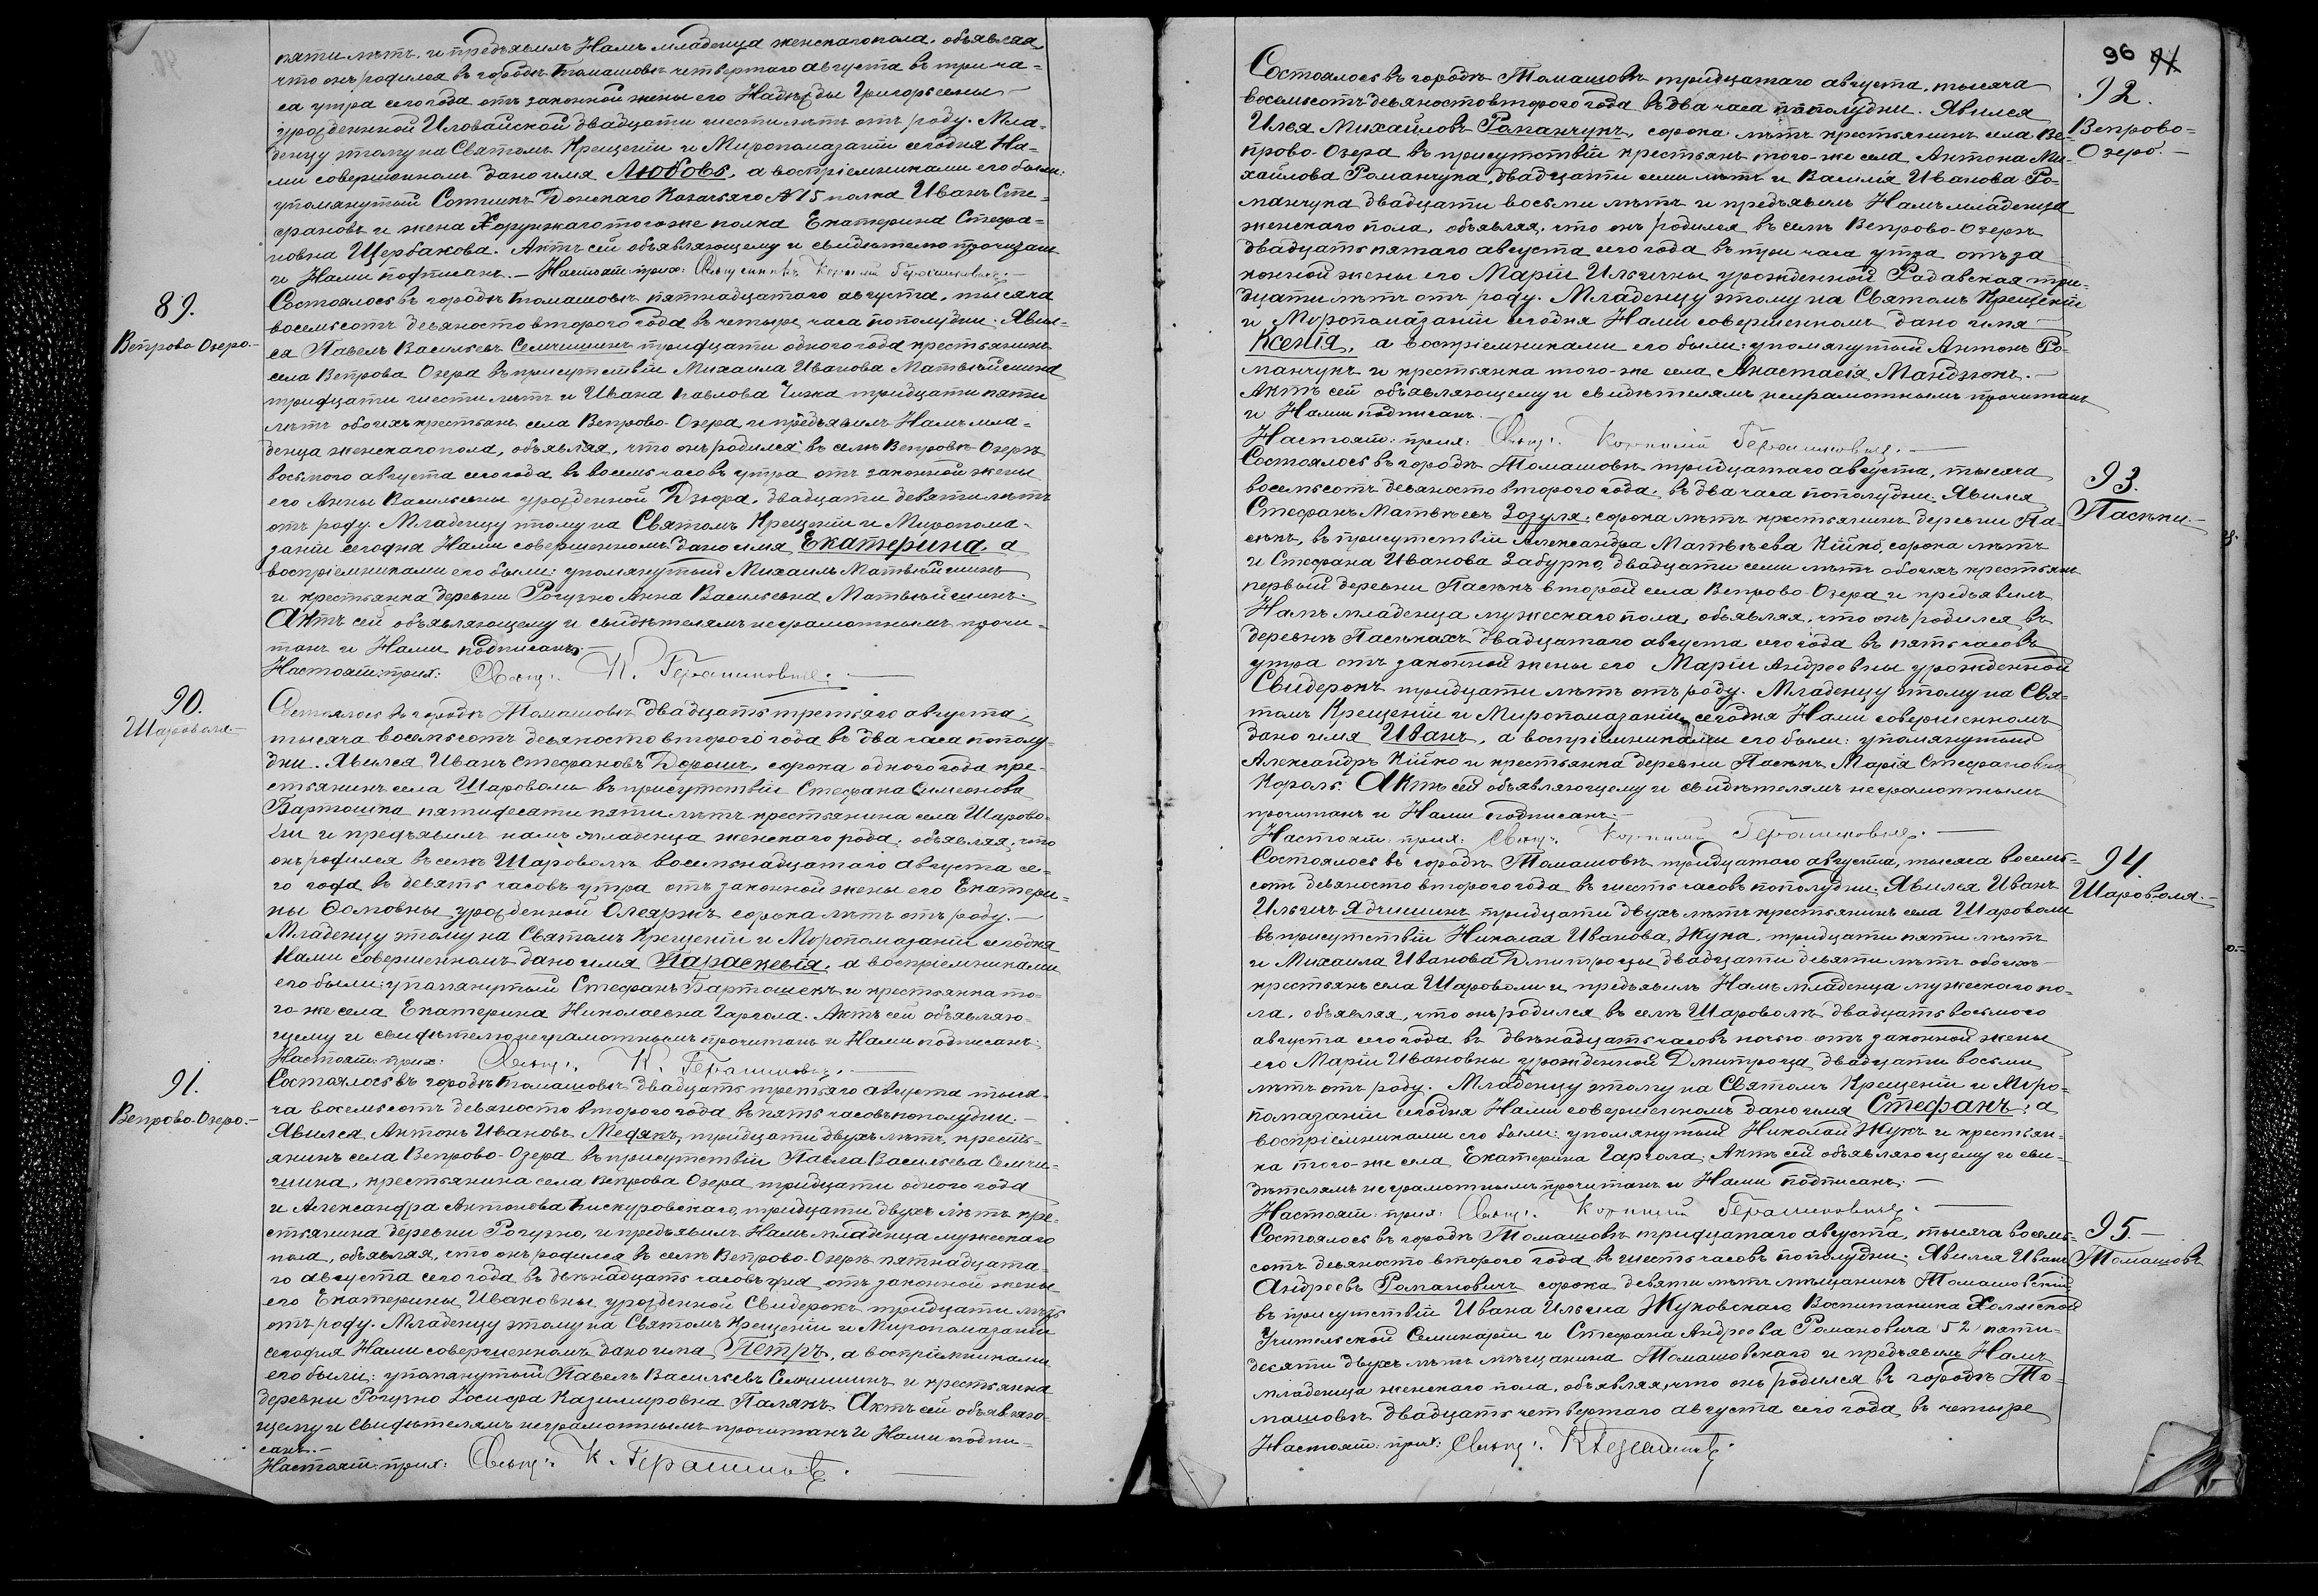 пяти лѣтъ, и предъявилъ Намъ младенца женскаго пола, объявляя,
что онъ родился въ городѣ Томашовѣ четвертаго августа въ три ча-
са утра сего года отъ законной жены его Надежды Григорьевны
урожденной Иловайской двадцати шести лѣтъ отъ роду. Мла-
денцу этому на Святомъ Крещеніи и Миропомазаніи сегодня На-
ми совершенномъ дано имя Любовь, а воспріемниками его были:
упомянутый Сотникъ Донскаго Казачьяго №15 полка Иванъ Сте-
фановъ и жена Хорунжаго того же полка Екатерина Стефа-
новна Щербакова. Актъ сей объявляющему и свидѣтелю прочитанъ
и Нами подписанъ. – Настоят: прих: Священникъ Корнилій
89.
Вепрово-Озеро.-
Состоялось въ городѣ Томашовѣ пятнадцатаго августа, тысяча
восемьсотъ девяносто второго года въ четыре часа пополудни. Явил-
ся Павелъ Васильевъ Семчишинъ тридцати одного года крестьянинъ
села Вепрова Озера въ присутствіи Михаила Иванова Матвѣйшина
тридцати шести лѣтъ и Ивана Павлова Чижа тридцати пяти
лѣтъ обоихъ крестьянъ села Вепрово-Озера, и предъявилъ Намъ мла-
денца женскаго пола, объявляя, что онъ родился въ селѣ Вепровѣ-Озерѣ
восьмого августа сего года въ восемь часовъ утра отъ законной жены
его Анны Васильевны урожденной Дзюра, двадцати девяти лѣтъ
отъ роду. Младенцу этому на Святомъ Крещеніи и Миропома-
заніи сегодня Нами совершенномъ дано имя Екатерина, а
воспріемниками его были: упомянутый Михаилъ Матвѣйшинъ
и крестьянка деревни Рогузно Анна Васильевна Матвѣйшинъ.
Актъ сей объявляющему и свидѣтелямъ неграмотнымъ прочи-
танъ и Нами подписанъ.-
Настоят: прих: Свящ: К.
90.
Шароволя.-
Состоялось въ городѣ Томашовѣ двадцать третьяго августа
тысяча восемьсотъ девяносто второго года въ два часа пополу-
дни. Явился Иванъ Стефановъ Дорошъ, сорока одного года кре-
стьянинъ села Шароволи въ присутствіи Стефана Симеонова
Бартошка пятидесяти пяти лѣтъ крестьянина села Шарово-
ли и предъявилъ намъ младенца женскаго рода, объявляя, что
онъ родился въ селѣ Шароволѣ восемьнадцатаго августа се-
го года въ девять часовъ утра отъ законной жены его Екатери-
ны Ѳомовны урожденной Олеяржъ сорока лѣтъ отъ роду.
Младенцу этому на Святомъ Крещеніи и Миропомазаніи сегодня
Нами совершенномъ дано имя Параскевія, а воспріемниками
его были: упомянутый Стефанъ Бартошекъ и крестьянка то-
го же села Екатерина Николаевна Гаргола. Актъ сей объявляю-
щему и свидѣтелю неграмотнымъ прочитанъ и Нами подписанъ.
Настоят: прих: Свящ: К.
91.
Вепрово-Озеро.-
Состоялось въ городѣ Томашовѣ двадцать третьяго августа тыся-
ча восемьсотъ девяносто второго года въ пять часовъ пополудни.-
Явился Антонъ Ивановъ Медякъ, тридцати двухъ лѣтъ, кресть-
янинъ села Вепрово-Озера въ присутствіи Павла Васильева Семчи-
шина, крестьянина села Вепрова Озера тридцати одного года
и Александра Антонова Пискуровскаго, тридцати двухъ лѣтъ кре-
стьянина деревни Рогузно, и предъявилъ Намъ младенца мужескаго
пола, объявляя, что онъ родился въ селѣ Вепрово-Озерѣ пятнадцата-
го августа сего года въ двѣнадцать часовъ дня отъ законной жены
его Екатерины Ивановны урожденной Свидерокъ тридцати лѣтъ
отъ роду. Младенцу этому на Святомъ Крещеніи и Миропомазаніи
сегодня Нами совершенномъ дано имя Петръ, а воспріемниками
его были: упомянутый Павелъ Васильевъ Семчишинъ и крестьянка
деревни Рогузно Іосифа Казимировна Палякъ. Актъ сей объявляю-
щему и свидѣтелямъ неграмотнымъ прочитанъ и Нами подпи-
санъ.-
Настоят: прих: Свящ: К.
96
92.
Вепрово-
Озеро.-
Состоялось въ городѣ Томашовѣ тридцатаго августа, тысяча
восемьсотъ девяносто второго года въ два часа пополудни. Явился
Илья Михайловъ Романчукъ, сорока лѣтъ крестьянинъ села Ве-
прово-Озера въ присутствіи крестьянъ того-же села Антона Ми-
хайлова Романчука, двадцати семи лѣтъ и Василія Иванова Ро-
манчука двадцати восьми лѣтъ и предъявилъ Намъ младенца
женскаго пола, объявляя, что онъ родился въ селѣ Вепрово-Озерѣ
двадцать пятаго августа сего года въ три часа утра отъ за
конной жены его Маріи Ильичны урожденной Радавская три-
дцати лѣтъ отъ роду. Младенцу этому на Святомъ Крещеніи
и Миропомазаніи сегодня Нами совершенномъ дано имя
Ксенія, а воспріемниками его были: упомянутый Антонъ Ро-
манчукъ и крестьянка того-же села Анастасія Мандзюкъ.-
Актъ сей объявляющему и свидѣтелямъ неграмотнымъ прочитанъ
и Нами подписанъ.-
Настоят: прих: Свящ: Корнилій
93.
Пасѣки.-
Состоялось въ городѣ Томашовѣ тридцатаго августа, тысяча
восемьсотъ девяносто второго года, въ два часа пополудни. Явился
Стефанъ Матвѣевъ Зозуля, сорока лѣтъ крестьянинъ деревни Па-
сѣкъ, въ присутствіи Александра Матвѣева Кійко, сорока лѣтъ
и Стефана Иванова Забурко, двадцати семи лѣтъ обоихъ крестьянъ
первый деревни Пасѣкъ второй села Вепрово-Озера и предъявилъ
Намъ младенца мужескаго пола, объявляя, что онъ родился въ
деревнѣ Пасѣкахъ двадцатаго августа сего года въ пять часовъ
утра отъ законной жены его Маріи Андреевны урожденной
Свидерокъ тридцати лѣтъ отъ роду. Младенцу этому на Свя-
томъ Крещеніи и Миропомазаніи сегодня Нами совершенномъ
дано имя Иванъ, а воспріемниками его были: упомянутый
Александръ Кійко и крестьянка деревни Пасѣкъ Марія Стефановна
Король. Актъ сей объявляющему и свидѣтелямъ неграмотнымъ
прочитанъ и Нами подписанъ.-
Настоят: прих: Свящ: Корнилій
94.
Шароволя.-
Состоялось въ городѣ Томашовѣ тридцатаго августа, тысяча восемь-
сотъ девяносто второго года въ шесть часовъ пополудни. Явился Иванъ
Ильичъ Ядчишинъ тридцати двухъ лѣтъ крестьянинъ села Шароволи
въ присутствіи Николая Иванова Жука, тридцати пяти лѣтъ
и Михаила Иванова Дмитроцы двадцати девяти лѣтъ обоихъ
крестьянъ села Шароволи и предъявилъ Намъ младенца мужескаго по-
ла, объявляя, что онъ родился въ селѣ Шароволѣ двадцать восьмого
августа сего года въ двѣнадцать часовъ ночью отъ законной жены
его Маріи Ивановны урожденной Дмитроца, двадцати восьми
лѣтъ отъ роду. Младенцу этому на Святомъ Крещеніи и Миро-
помазаніи сегодня Нами совершенномъ дано имя Стефанъ, а
воспріемниками его были: упомянутый Николай Жукъ и крестьян-
ка того-же села Екатерина Гаргола. Актъ сей объявляющему и сви-
дѣтелямъ неграмотнымъ прочитанъ и Нами подписанъ.-
Настоят: прих: Свящ: Корнилій
95.-
Томашовъ
Состоялось въ городѣ Томашовѣ тридцатаго августа, тысяча восемь-
сотъ девяносто второго года въ шесть часовъ пополудни. Явился Иванъ
Андреевъ Романовичъ сорока девяти лѣтъ мѣщанинъ Томашовскій
въ присутствіи Ивана Ильича Жуковскаго Воспитаника Холмской
Учительской Семинаріи и Стефана Андреева Романовича 52 пяти-
десяти двухъ лѣтъ мѣщанина Томашовскаго и предъявилъ Намъ
младенца женскаго пола, объявляя, что онъ родился въ городѣ То-
машовѣ двадцать четвертаго августа сего года въ четыре
Настоят: прих: Свящ: